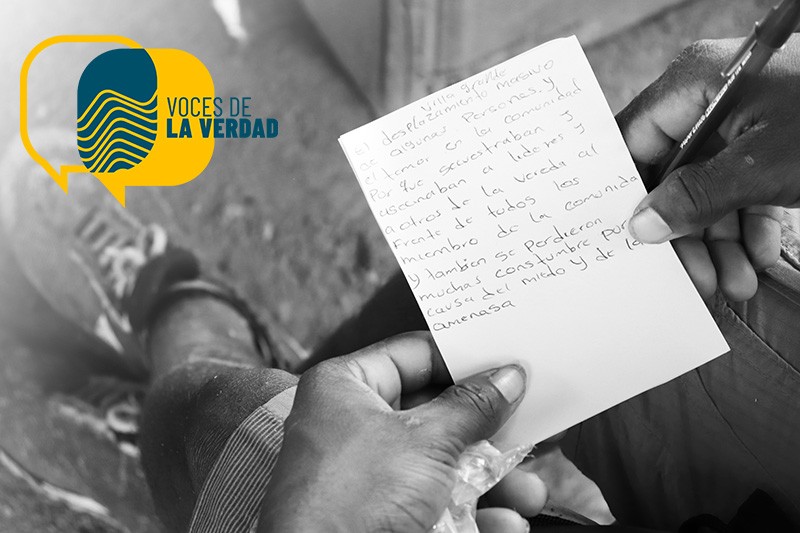 VOCES DE
LA VERDAD
villa grande
El desplazamiento masivo
de algunas Personas. y
el temor en la comunidad
Por que secuestraban y
asecinaban a lideres y
a otros de la vereda al
Frente de todos los
miembro de la comunida
y tambien se perdieron
muchas constumbre por
causa del miedo y de la
amenasa